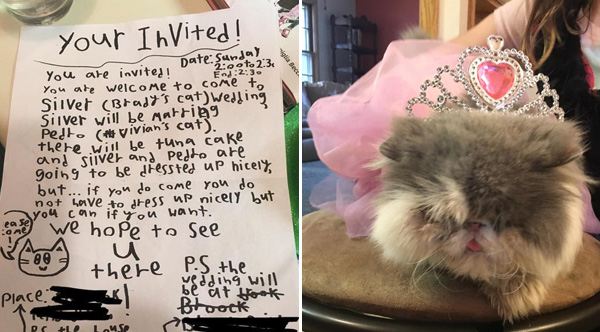 Your InVited!
Date: Sunday
2:00to2:30
End: 2:30
You are invited!
You are welcome to come to
Silver (Brady's cat) Wedding
Silver will be marring
Pedro (Vivian's cat).
there will be tuna cake
and silver and Pedro are
going to be dressted up nicely,
but... if you do come you do
not have to dress up nicely but
you can if you want.
We hope to see
u
there
P.S. the
wedding will
be at
Place:
P.S. the house